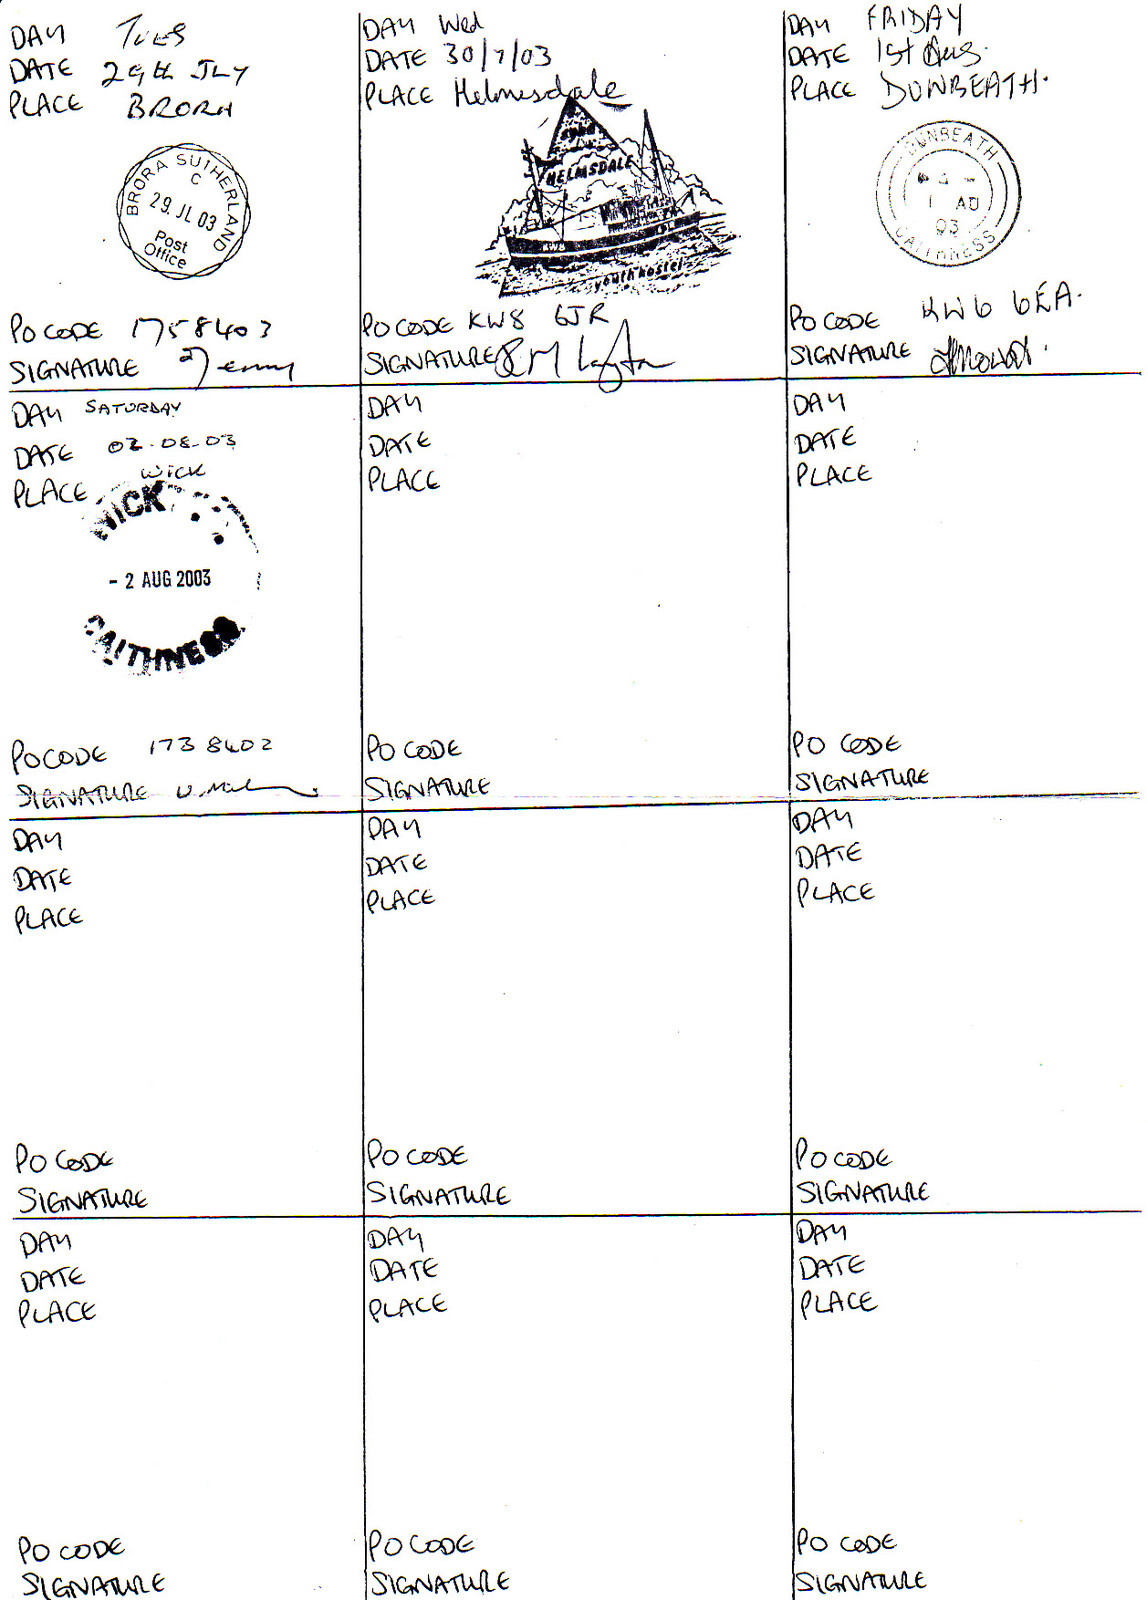 DAY TUES
DATE 29th JLY
PLACE BRORA
BRORA SUTHERLAND
C
29. JL 03
Post
Office
PO CODE 1758403
SIGNATURE
DAY Wed
DATE 30/7/03
PLACE Helmesdale
syha
HELMSDALE
youth hostel
PO CODE KW8 6JR
SIGNATURE
DAY FRIDAY
DATE 1st Aug.
PLACE DUNBEATH.
DUNBEATH
1 AU
03
CAITHNESS
PO CODE KW6 6EA.
SIGNATURE
DAY SATURDAY
DATE 02-08-03
WICK
PLACE
WICK
- 2 AUG 2003
CAITHNESS
PO CODE 1738402
SIGNATURE
DAY
DATE
PLACE
PO CODE
SIGNATURE
DAY
DATE
PLACE
PO CODE
SIGNATURE
DAY
DATE
PLACE
PO CODE
SIGNATURE
DAY
DATE
PLACE
PO CODE
SIGNATURE
DAY
DATE
PLACE
PO CODE
SIGNATURE
DAY
DATE
PLACE
PO CODE
SIGNATURE
DAY
DATE
PLACE
PO CODE
SIGNATURE
DAY
DATE
PLACE
PO CODE
SIGNATURE